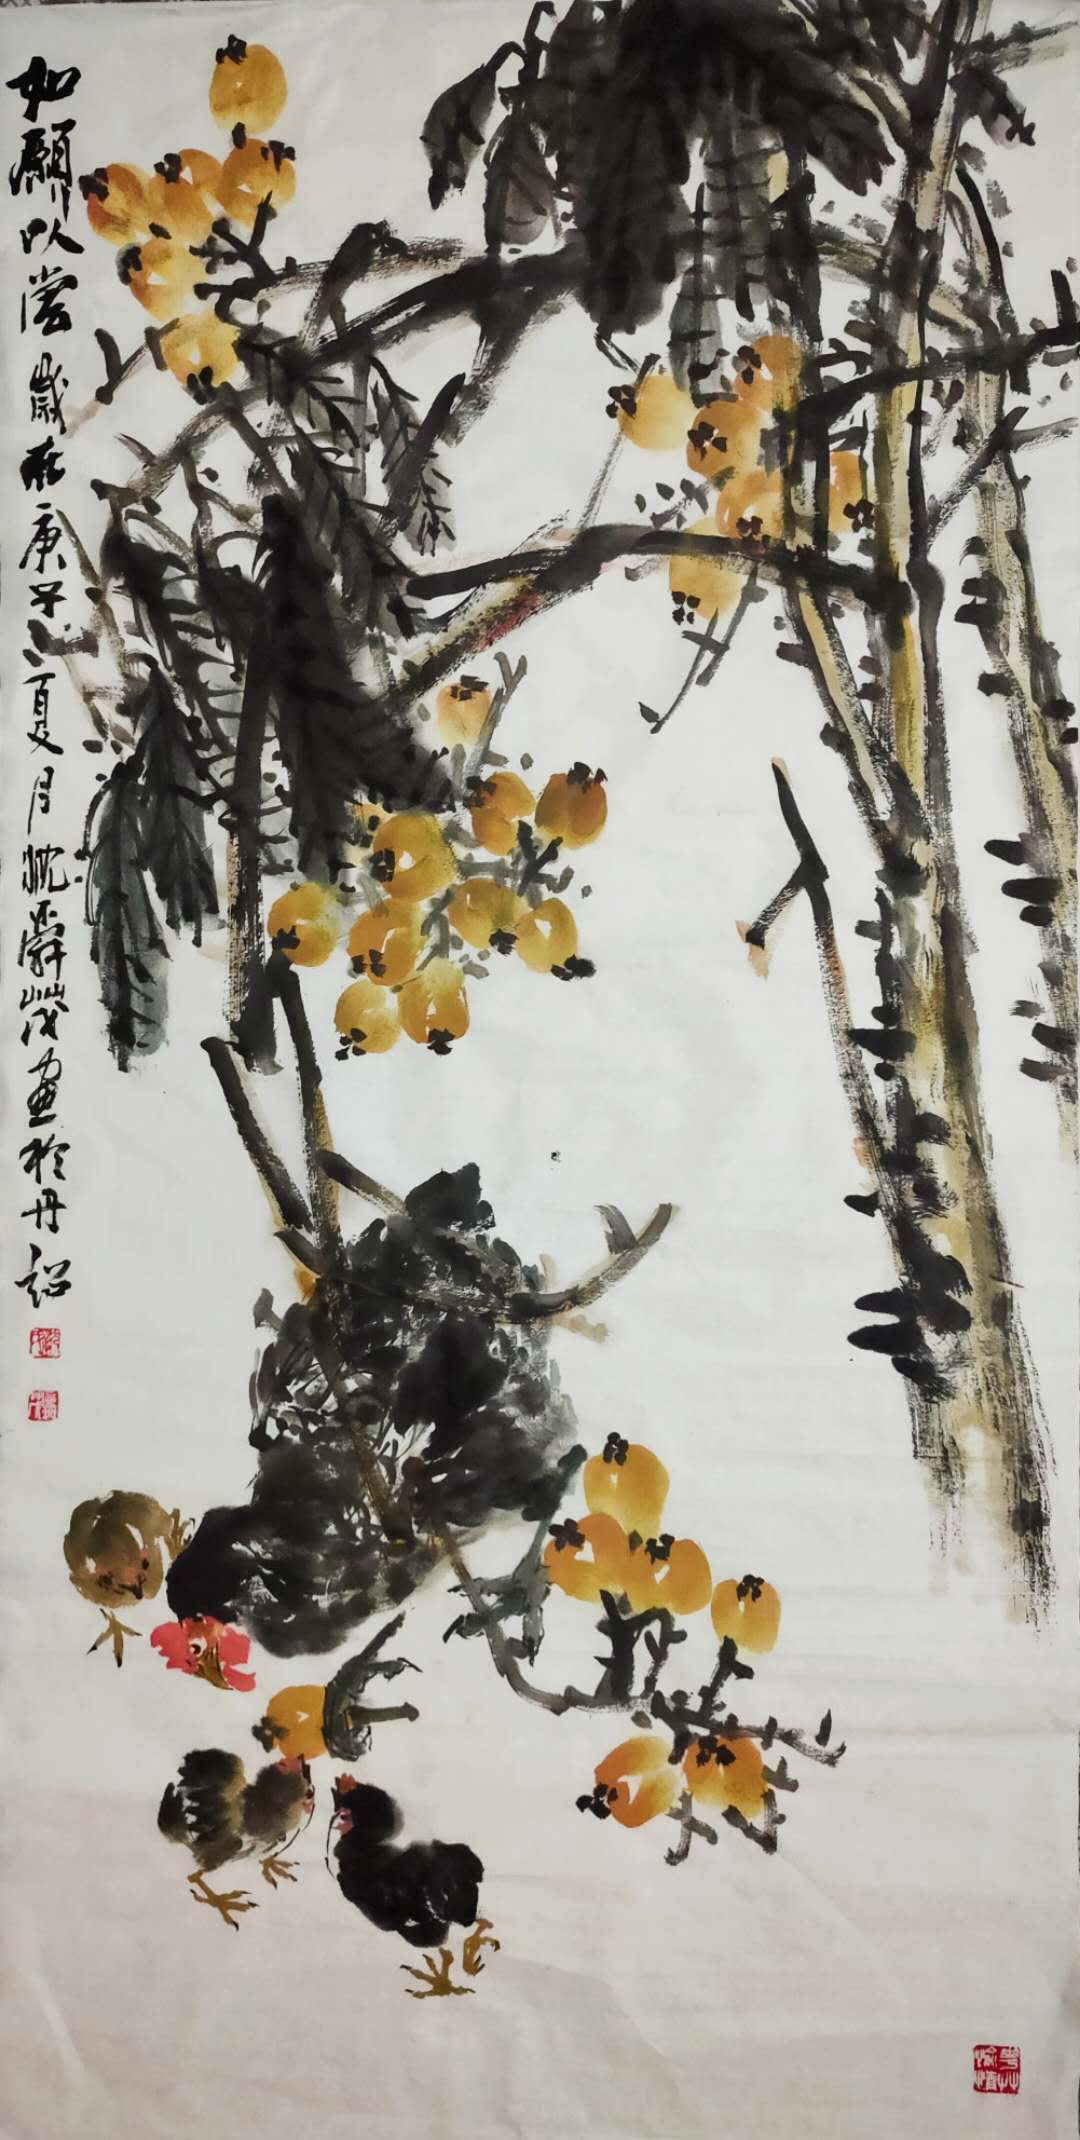 如願以嘗歲在庚子之夏月沈舜茂画於丹